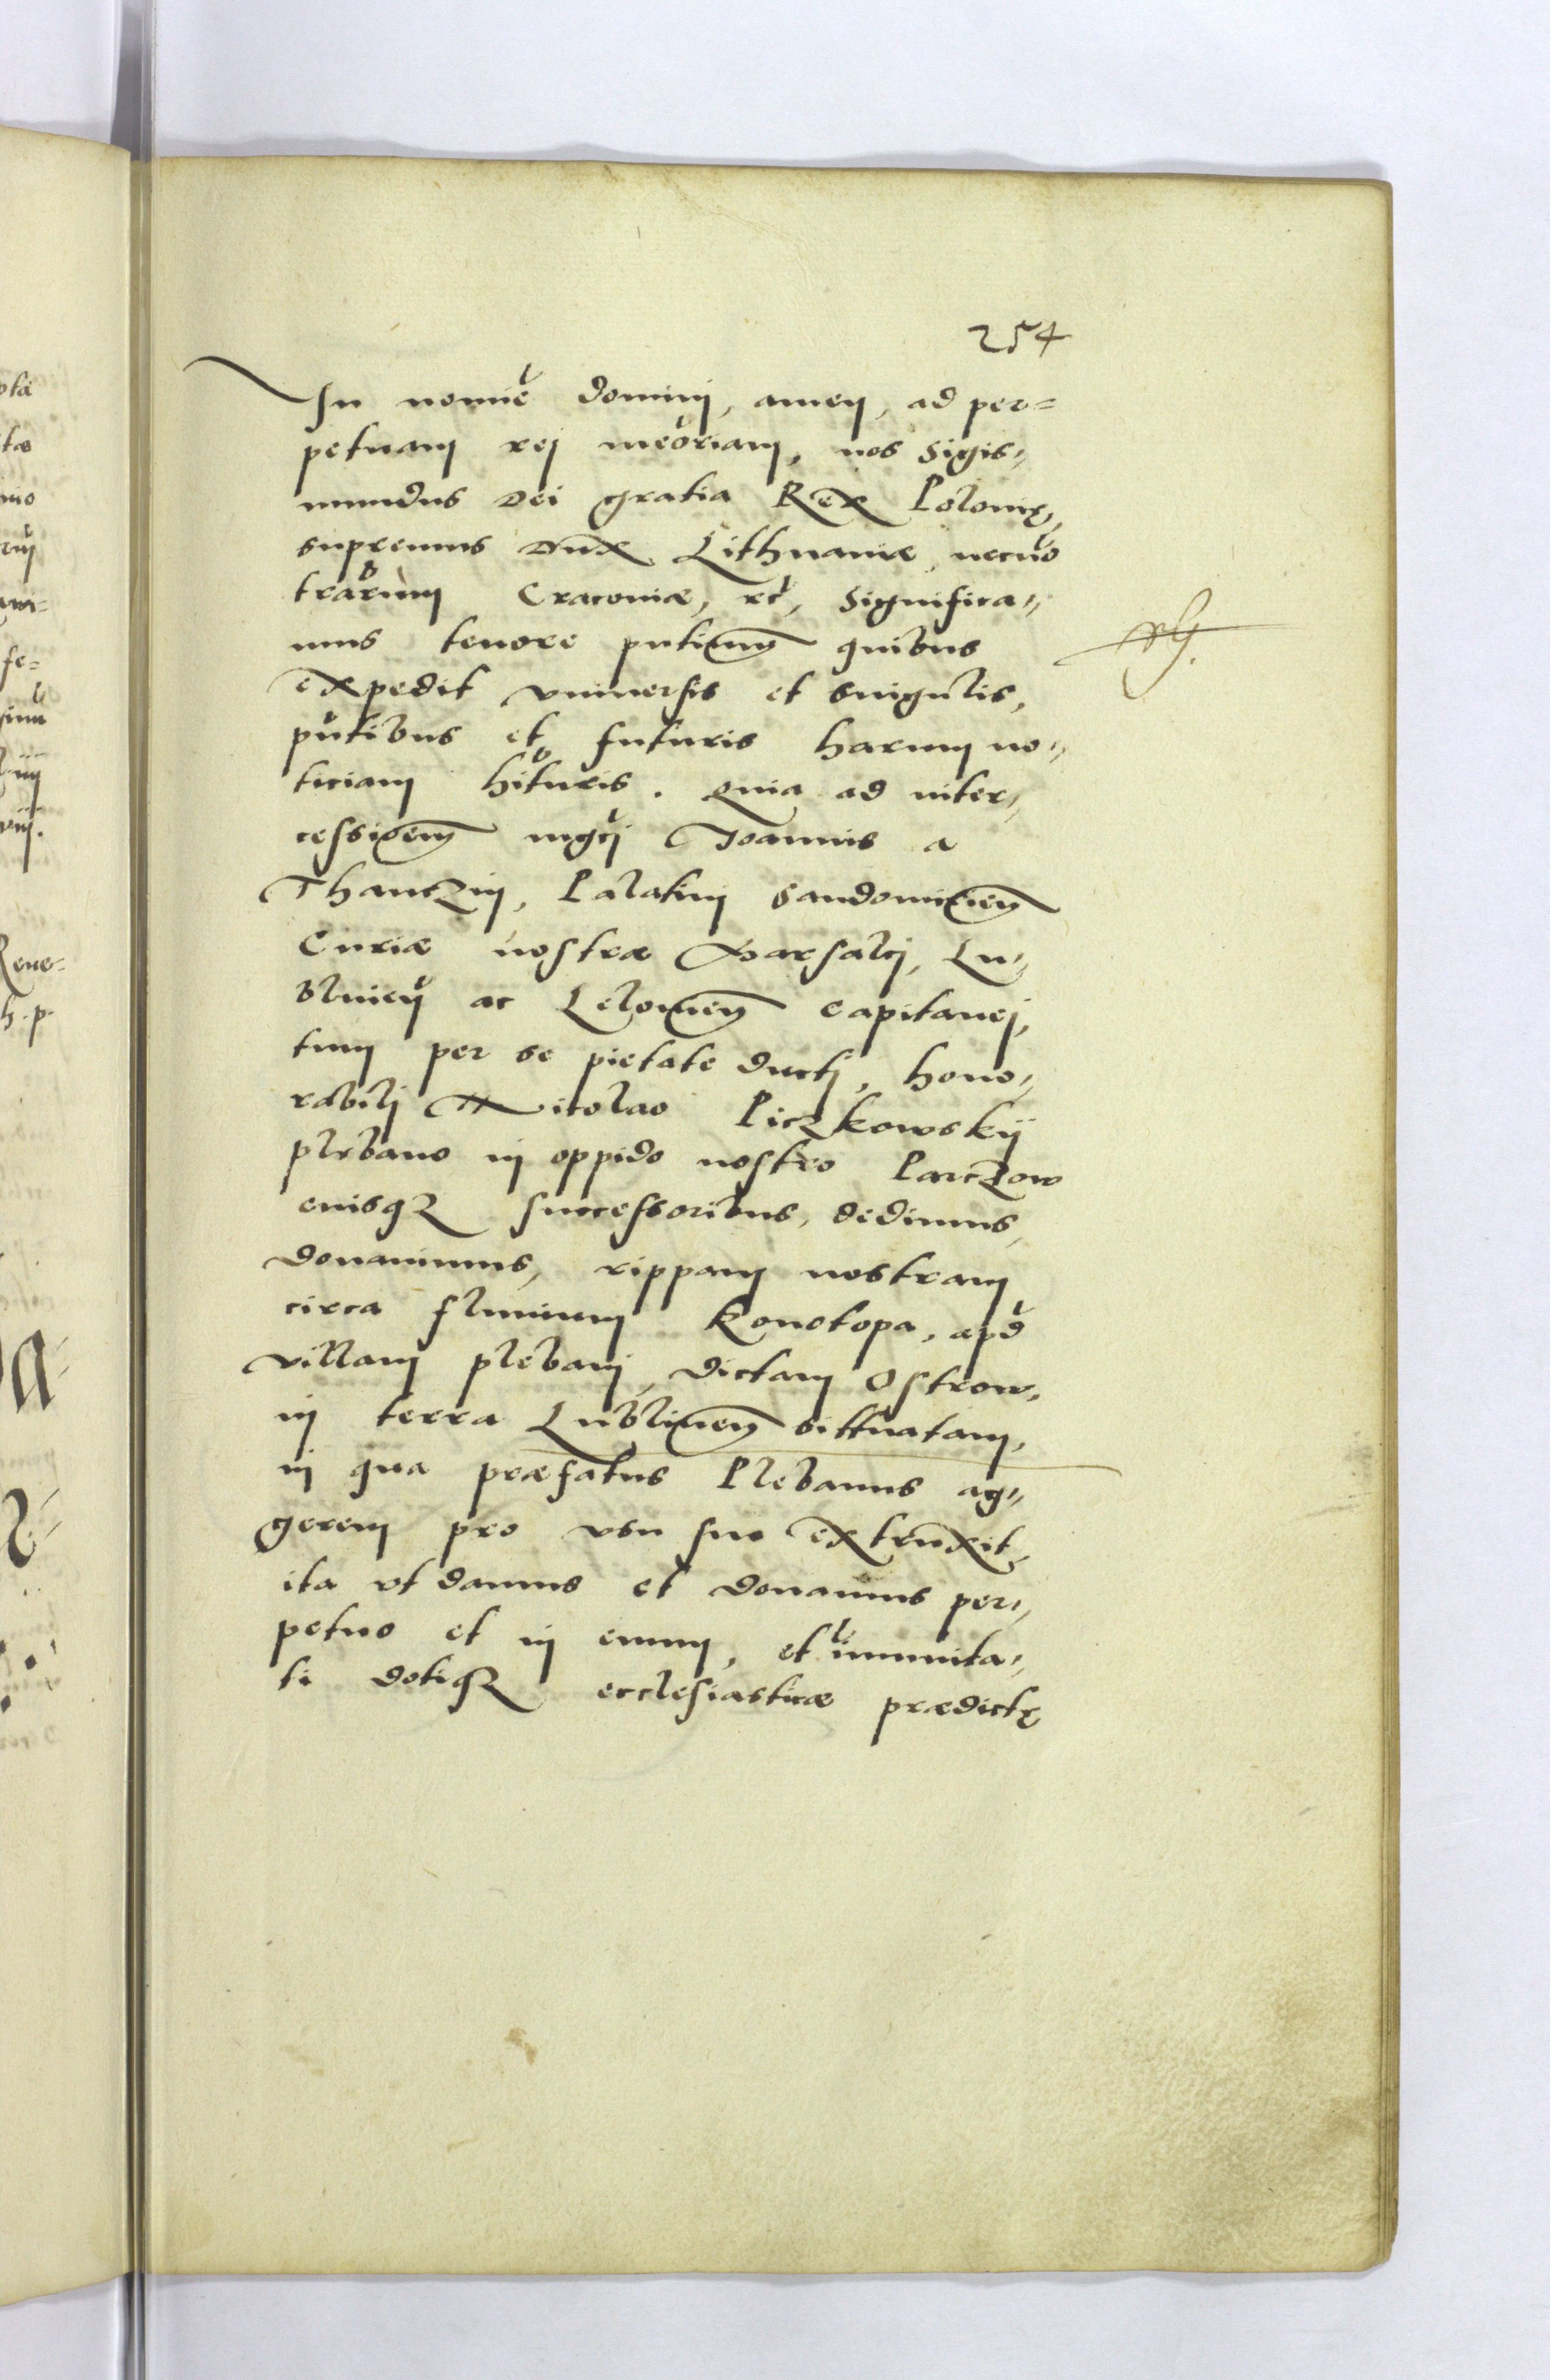 254
In nomi͞e dominj, amen, ad per=
petuam rej meo͞riam, nos Sigis=
mundus Dei gratia Rex Polonię,
supremus Dux Lithuaniæ, necno͞
trar͞um Cracoviæ, etc͞, Significa=
mus tenore pntium͞ quibus
Expedit vniuersis et singulis,
pn͞tibus et futuris harum no=
ticiam hit͞uris. Quia ad inter=
cession͞em mgcj͞ Joannis a
Thanczin, Palatini Sandomirien͞
Curiæ nostræ Marsalcj, Lu=
blinen͞ ac Lelovien͞ Capitanej,
tum per se pietate ductj, hono=
rabilj Nicolao Piczkowskij
plebano in oppido nostro Parczow
euisqz successoribus, dedimus,
donauimus, rippam nostram
circa fluuium Konotopa, apd͞
villam plebanj, dictam Ostrow,
in terra Lublinen͞ sittuatam,
in qua præfatus Plebanus ag=
gerem pro vsu suo extruxit,
ita vt damus et donamus per=
petuo et in euum, et im͞unita=
ti dotiqz ecclesiasticæ prædictę